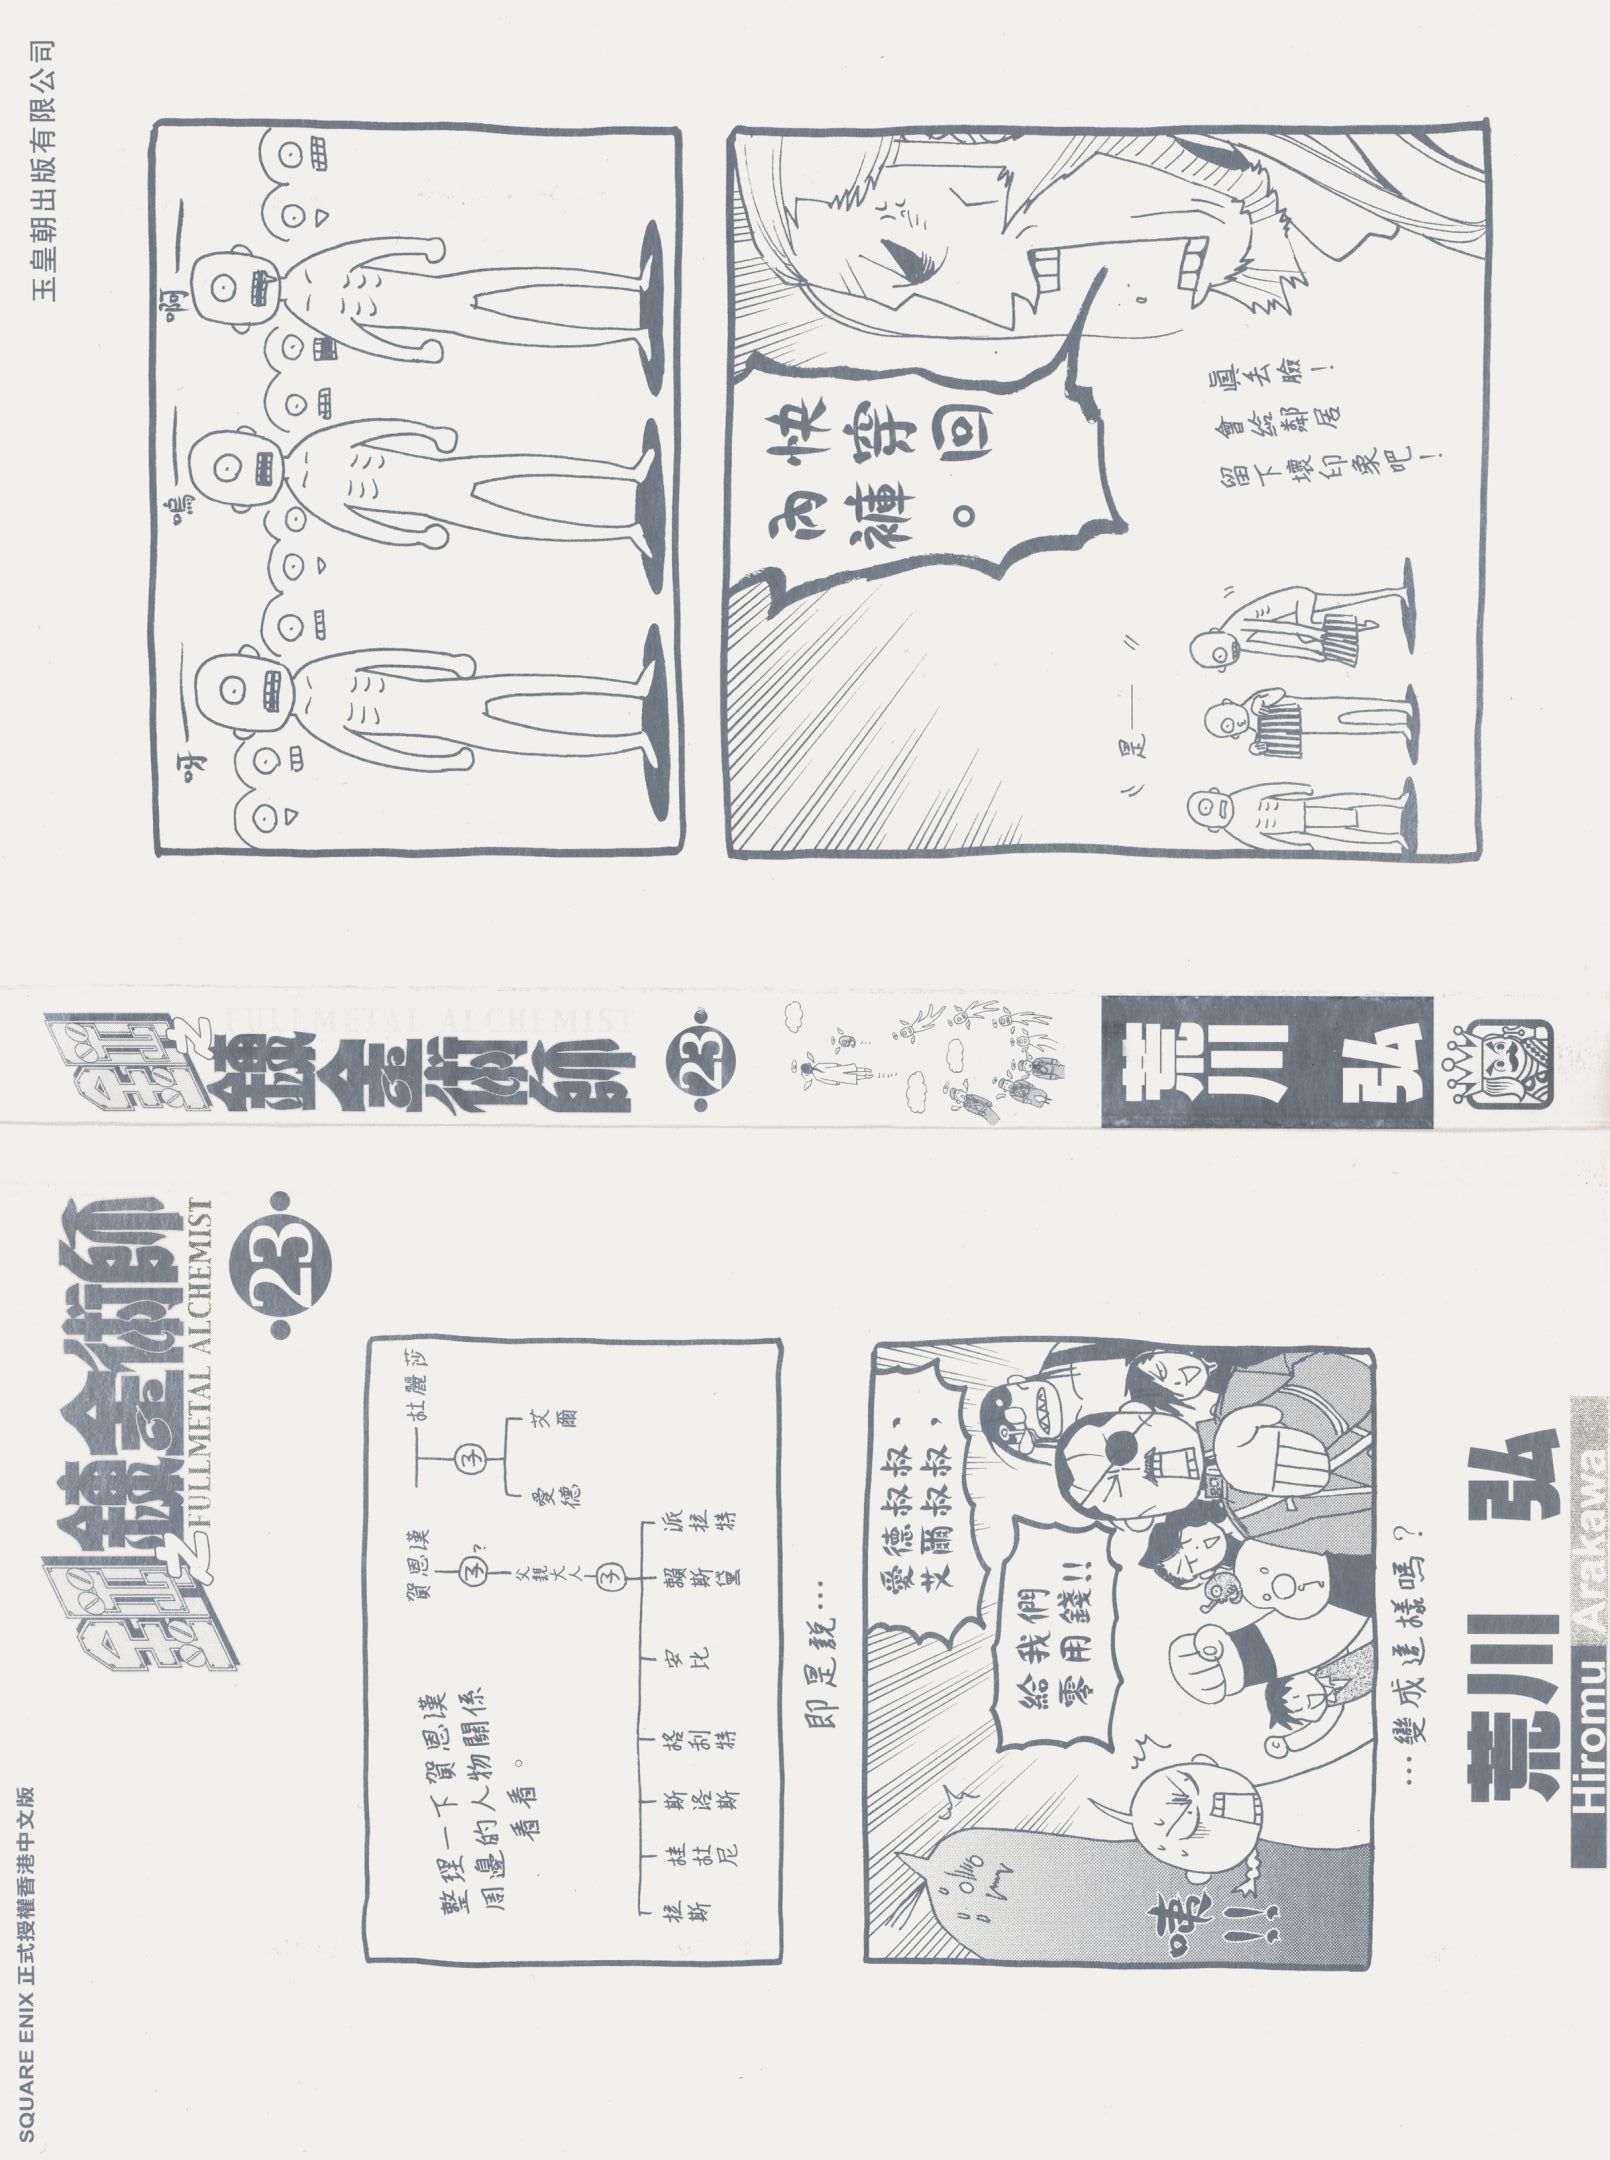 SQUARE ENIX 正式授權香港中文版
鋼之鍊金術師
FULLMETAL ALCHEMIST
23
整理一下賀恩漢
周邊的人物關係
看看。
賀恩漢
杜麗莎
子?
子
父親大人
愛德
艾爾
子
拉斯
桂杜尼
斯洛斯
格利特
安比
賴斯黛
派拉特
即是說…
愛德叔叔、
艾爾叔叔，
給我們
零用錢!!
嘩!!
…變成這樣嗎？
荒川 弘
Hiromu Arakawa
鋼之鍊金術師
FULLMETAL ALCHEMIST
23
荒川 弘
玉皇朝出版有限公司
啊——
嗚——
呀——
快穿回
內褲。
真丟臉！
會給鄰居
留下壞印象吧！
是——